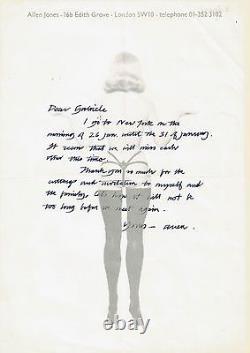 Allen Jones - 16b Edith Grove - London SW10 - telephone 01-352 3102
Dear Gabriele
I go to New York on the
morning of 26 Jan. until the 31 of January.
It seems that we will miss each
other this time.
Thank you so much for the
and invitation to myself and
the family. Let's hope it will not be
too long before we meet again.
Yours - Allen